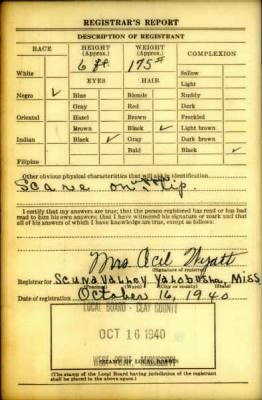 REGISTRAR'S REPORT
DESCRIPTION OF REGISTRANT
RACE HEIGHT (Approx.) WEIGHT (Approx.) COMPLEXION
6 ft 175#
White Sallow
EYES HAIR Light
Negro ✓ Blue Blonde Ruddy
Gray Red Dark
Oriental Hazel Brown Freckled
Brown Black ✓ Light brown
Indian Black ✓ Gray Dark brown
Bald Black ✓
Filipino
Other obvious physical characteristics that will aid in identification
Scare on lip.
I certify that my answers are true; that the person registered has read or has had
read to him his own answers; that I have witnessed his signature or mark and that
all of his answers of which I have knowledge are true, except as follows:
Mrs Cecil Wyatt
(Signature of registrar)
Registrar for Scuna Valley Yalobusha, Miss
(Precinct) (City or county) (State)
Date of registration October 16, 1940
LOCAL BOARD - CLAY COUNTY
OCT 16 1940
WEST POINT, MISSISSIPPI
(STAMP OF LOCAL BOARD)
(The stamp of the Local Board having jurisdiction of the registrant
shall be placed in the above space.)